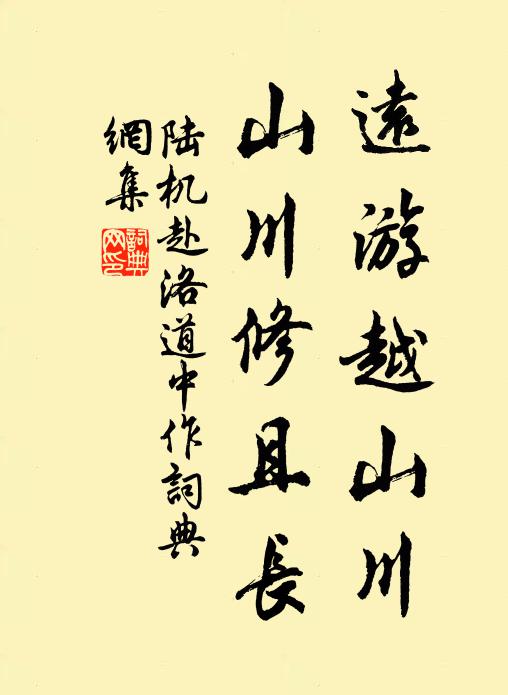 遠游越山川
山川修且長
陆机赴洛道中作詞典
網集
詞典
网印